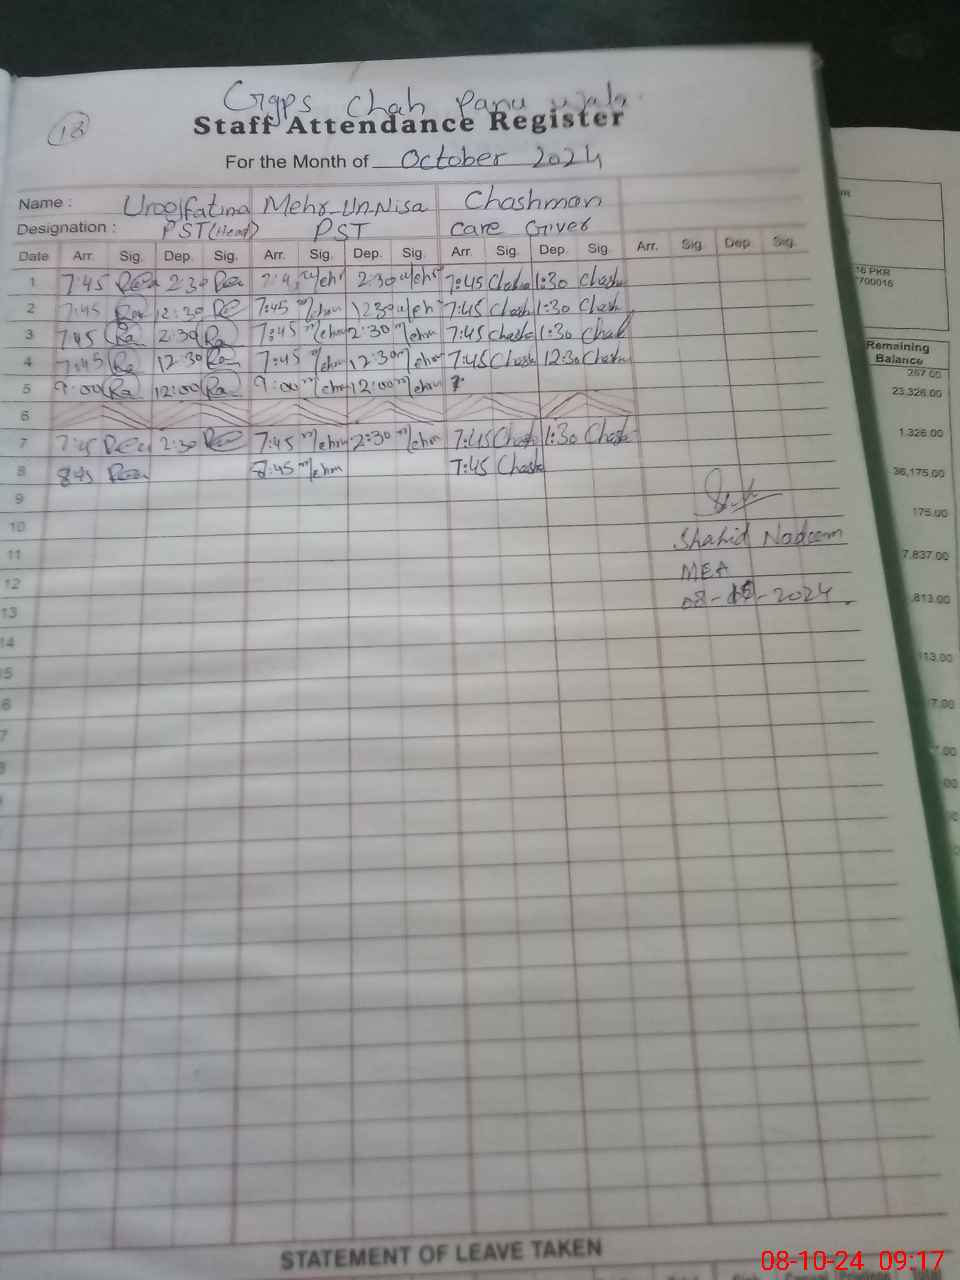 18
Ggps Chah Panu wala
Staff Attendance Register
For the Month of October 2024
Name : Urooj fatima Mehr-Un-Nisa Chashman
Designation : PST (Head) PST Care Giver
Date Arr. Sig. Dep. Sig. Arr. Sig. Dep. Sig. Arr. Sig. Dep. Sig. Arr. Sig. Dep. Sig.
1 7:45 2:30 2:30 7:45 1:30 Chash
2 7:45 12:30 7:45 Mehm 12:30 7:45 Chash 1:30 Chash
3 7:45 2:30 7:45 Mehm 2:30 Mehm 7:45 Chash 1:30
4 7:45 12:30 7:45 Mehm 12:30 Mehm 7:45 Chash 12:30 Chash
5 9:00 12:00 9:00 Mehm 12:00 Mehm
6
7 7:45 2:30 7:45 Mehm 2:30 Mehm 7:45 Chash 1:30 Chash
8 8:45 8:45 Mehm 7:45 Chash
9
10
11
12
13
14
Shahid Nadeem
MEA
08-10-2024
STATEMENT OF LEAVE TAKEN
16 PKR
700016
Remaining
Balance
267.00
23,326.00
1,326.00
36,175.00
175.00
7,837.00
,813.00
113.00
7.00
08-10-24 09:17